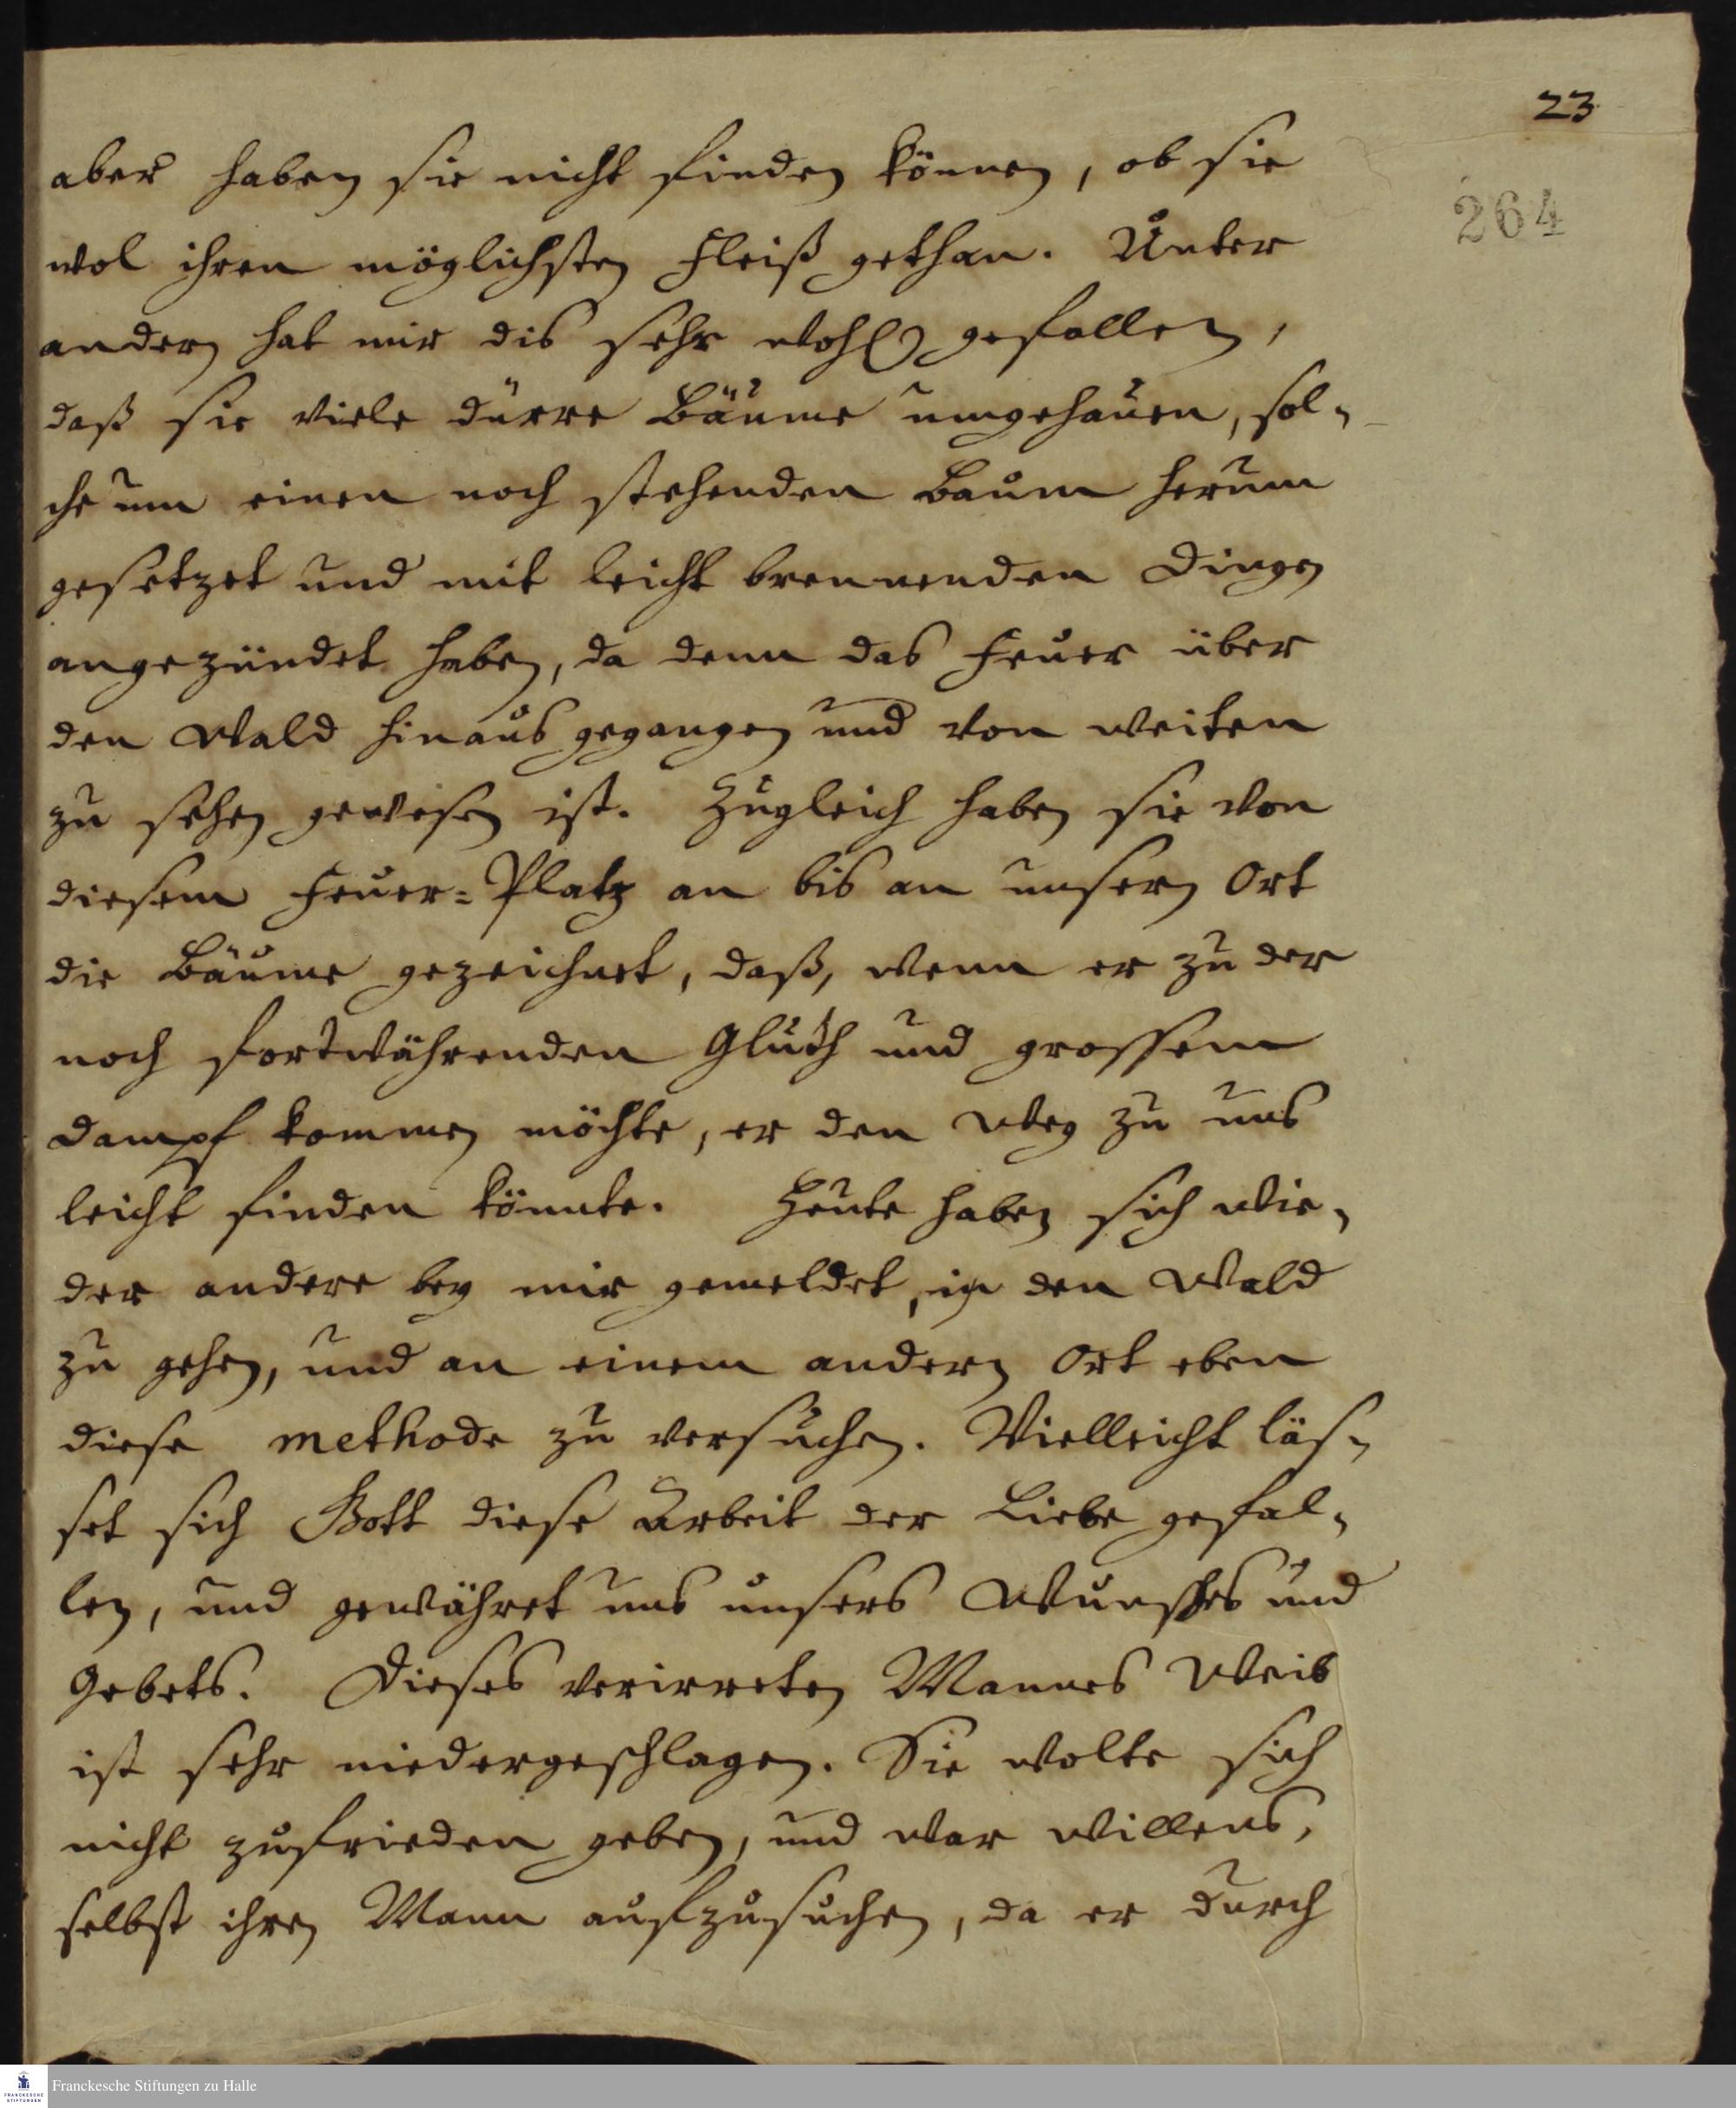 23
264
aber haben sie nicht finden können, ob sie
wol ihren möglichsten Fleiß gethan. Unter
andern hat mir dis sehr wohl gefallen,
daß sie viele dürre Bäume umgehauen, sol-
che um einen noch stehenden Baum herum
gesetzet und mit leicht brennenden Dingen
angezündet haben, da denn das Feuer über
den Wald hinaus gegangen und von weiten
zu sehen gewesen ist. Zugleich haben sie von
diesem Feuer-Platz an bis an unsern Ort
die Bäume gezeichnet, daß, wenn er zu der
noch fortwährenden Gluth und grossem
Dampf kommen möchte, er den Weg zu uns
leicht finden könnte. Heute haben sich wie-
der andere bey mir gemeldet, in den Wald
zu gehen, und an einem andern Ort eben
diese methode zu versuchen. Vielleicht läs-
set sich Gott diese Arbeit der Liebe gefal-
len, und gewähret uns unsers Wunsches und
Gebets. Dieses verirreten Mannes Weib
ist sehr niedergeschlagen. Sie wolte sich
nicht zufrieden geben, und war willens,
selbst ihren Mann aufzusuchen, da er durch
Franckesche Stiftungen zu Halle
FRANCKESCHE
STIFTUNGEN